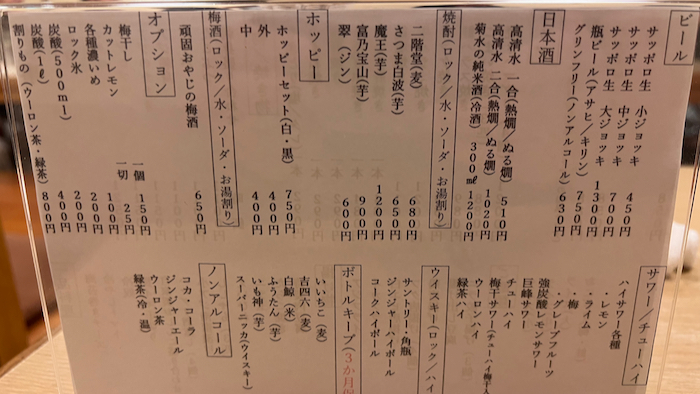 ビール
サッポロ生 小ジョッキ 450円
サッポロ生 中ジョッキ 700円
サッポロ生 大ジョッキ 1300円
瓶ビール(アサヒ/キリン) 750円
グリンフリー(ノンアルコール) 630円
日本酒
高清水 一合(熱燗/ぬる燗) 510円
高清水 二合(熱燗/ぬる燗) 1020円
菊水の純米酒(冷酒) 300㎖ 1200円
焼酎(ロック/水・ソーダ・お湯割り)
二階堂(麦) 680円
さつま白波(芋) 650円
魔王(芋) 1200円
富乃宝山(芋) 900円
翠(ジン) 600円
ホッピー
ホッピーセット(白・黒) 750円
外 400円
中 400円
梅酒(ロック/水・ソーダ・お湯割り)
頑固おやじの梅酒 650円
オプション
梅干し 一個 150円
カットレモン 一切 25円
各種濃いめ 100円
ロック氷 200円
炭酸(500ml) 200円
炭酸(1ℓ) 400円
割りもの(ウーロン茶・緑茶) 800円
サワー/チューハイ
ハイサワー各種
・レモン
・ライム
・梅
・グレープフルーツ
強炭酸レモンサワー
巨蜂サワー
チューハイ
梅干サワー(チューハイ梅干入
ウーロンハイ
緑茶ハイ
ウイスキー(ロック/ハイ
サントリー角瓶
ジンジャーハイボール
コークハイボール
ボトルキープ(3か月
いいちこ(麦)
吉四六(麦)
白鯨(米)
ふうたん(芋)
いも神(芋)
スーパーニッカ(ウイスキー)
ノンアルコール
コカ・コーラ
ジンジャーエール
ウーロン茶
緑茶(冷・温)